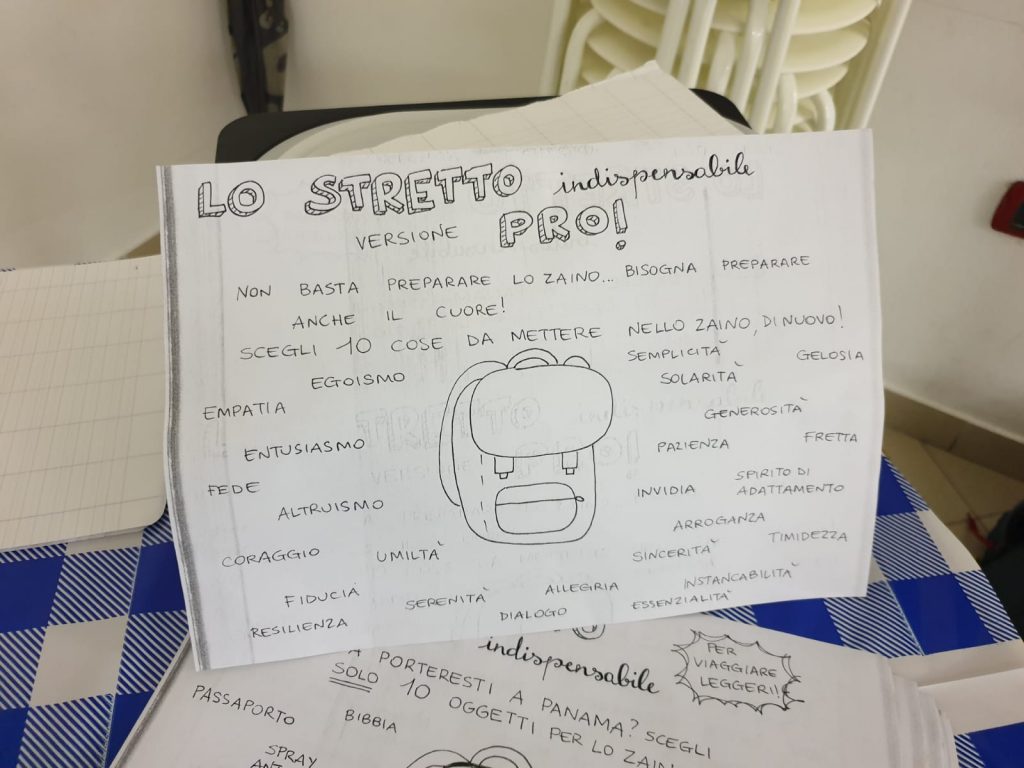 LO STRETTO indispensabile
VERSIONE PRO!
NON BASTA PREPARARE LO ZAINO... BISOGNA PREPARARE
ANCHE IL CUORE!
SCEGLI 10 COSE DA METTERE NELLO ZAINO, DI NUOVO!
SEMPLICITÀ
GELOSIA
EGOISMO
SOLARITÀ
EMPATIA
GENEROSITÀ
ENTUSIASMO
PAZIENZA
FRETTA
FEDE
INVIDIA
SPIRITO DI
ADATTAMENTO
ALTRUISMO
ARROGANZA
TIMIDEZZA
CORAGGIO
UMILTÀ
SINCERITÀ
FIDUCIA
SERENITÀ
ALLEGRIA
INSTANCABILITÀ
RESILIENZA
DIALOGO
ESSENZIALITÀ
indispensabile
PER
VIAGGIARE
LEGGERI!
A PORTERESTI A PANAMA? SCEGLI
SOLO 10 OGGETTI PER LO ZAIN
PASSAPORTO
BIBBIA
SPRAY